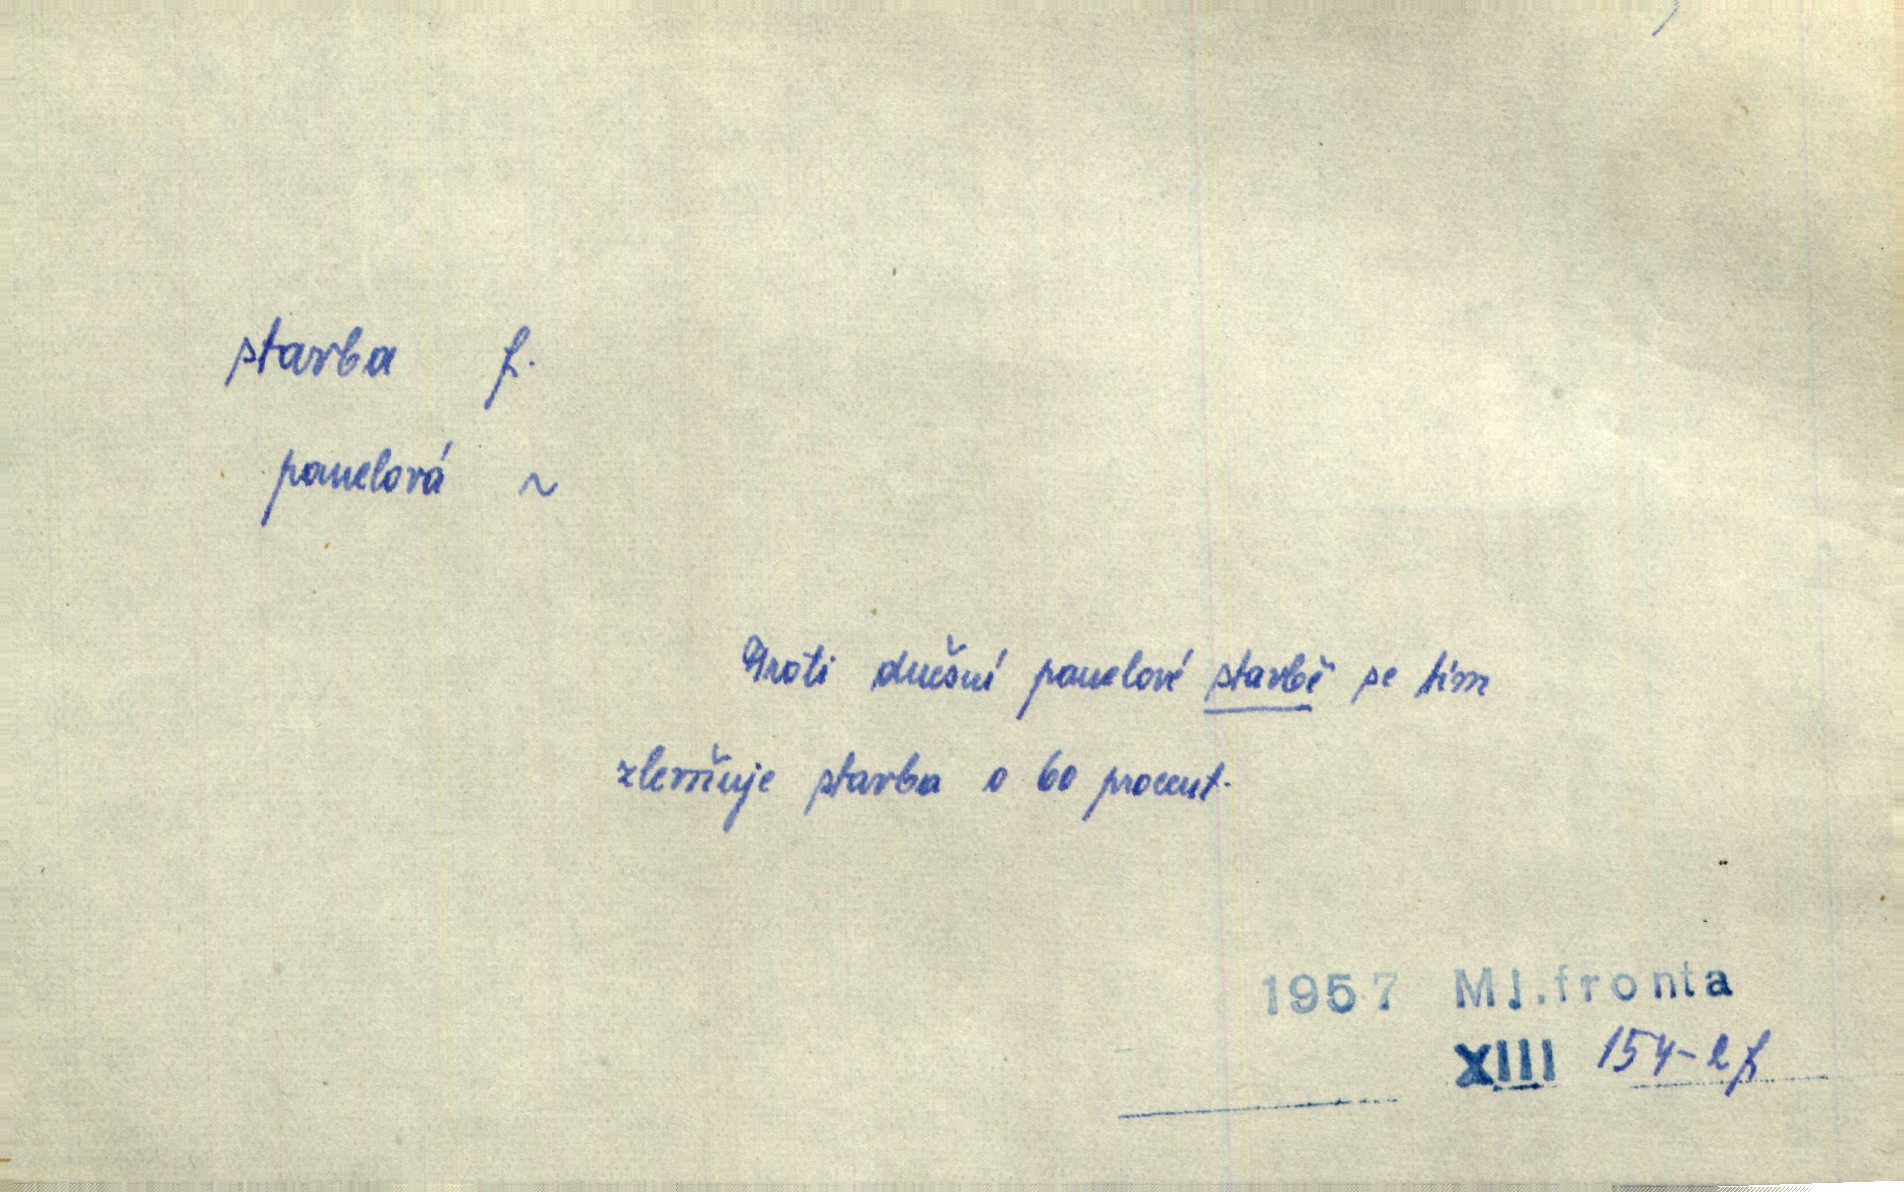 stavba f.
panelová ~
Proti dnešní panelové stavbě se tím
zlevňuje stavba o 60 procent.
1957 Ml.fronta
XIII 154-2f